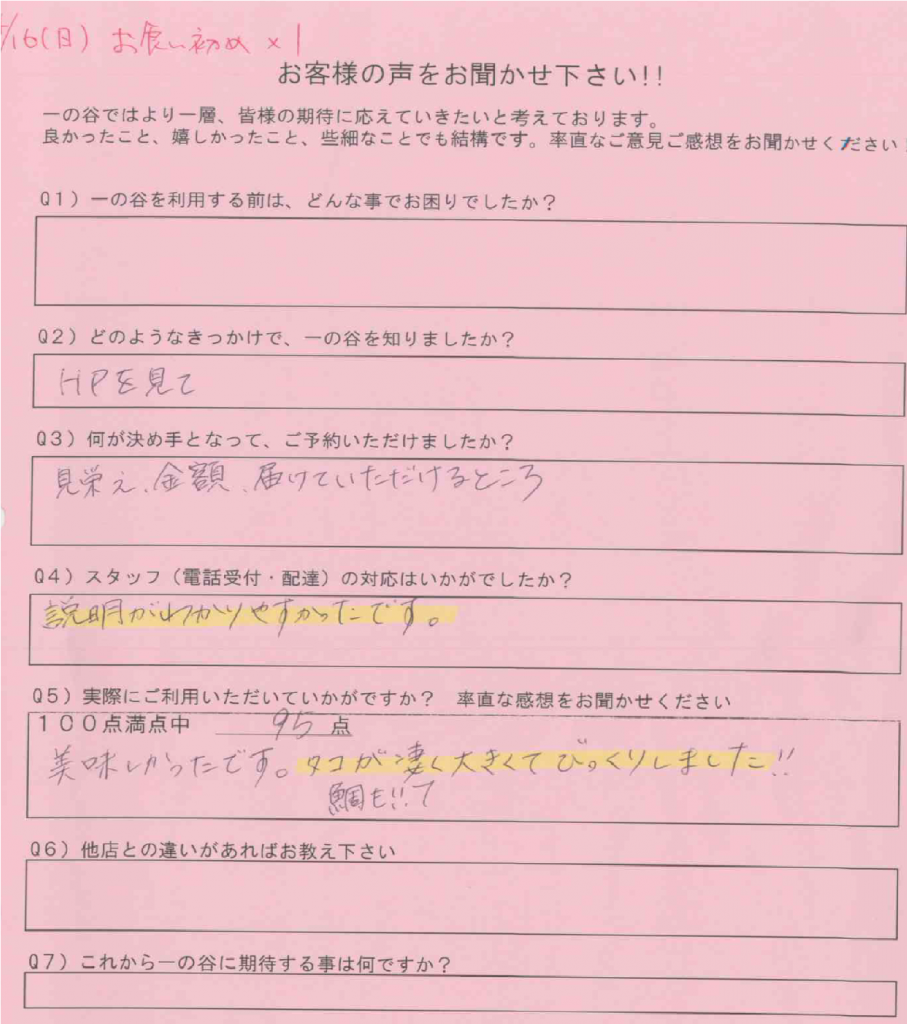 /16(日) お食い初め ×1
お客様の声をお聞かせ下さい!!
一の谷ではより一層、皆様の期待に応えていきたいと考えております。
良かったこと、嬉しかったこと、些細なことでも結構です。率直なご意見ご感想をお聞かせください
Q1)一の谷を利用する前は、どんな事でお困りでしたか?
Q2)どのようなきっかけで、一の谷を知りましたか?
HPを見て
Q3)何が決め手となって、ご予約いただけましたか?
見栄え、金額、届けていただけるところ
Q4)スタッフ(電話受付・配達)の対応はいかがでしたか?
説明がわかりやすかったです。
Q5)実際にご利用いただいていかがですか? 率直な感想をお聞かせください
100点満点中 95 点
美味しかったです。タコが凄く大きくてびっくりしました!!
鯛も!!
Q6)他店との違いがあればお教え下さい
Q7)これから一の谷に期待する事は何ですか?